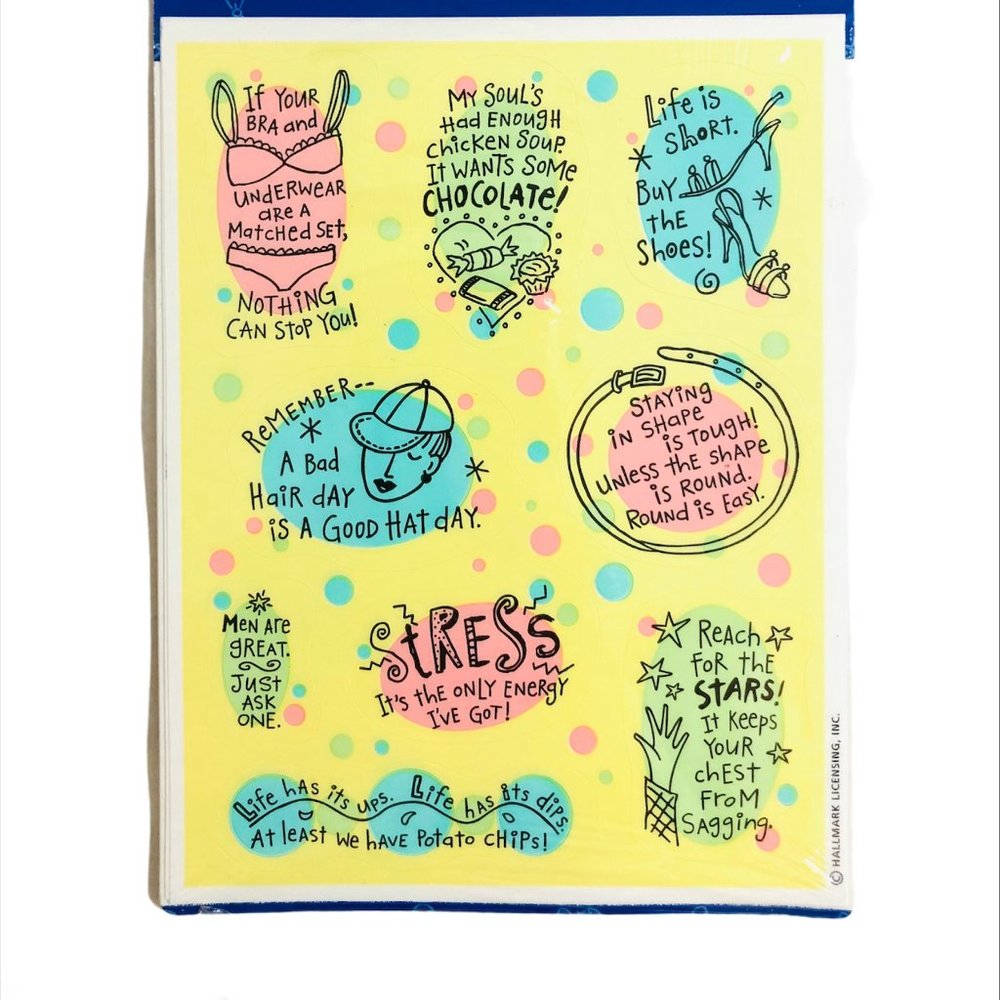 If Your
BRA and
UndERWEAR
aRE A
Matched Set,
NOTHiNG
CAN Stop You!
My Soul's
Had Enough
Chicken Soup.
It Wants Some
CHOCOLATE!
Life is
Short.
Buy
the
Shoes!
ReMEMBER--
A Bad
Hair dAY
is A Good HAt dAY.
STAYiNG
iN SHApe
is Tough!
Unless the shApe
is Round.
Round is Easy.
Men Are
gREAt.
Just
Ask
One.
StRESS
It's the only Energy
I've Got!
Reach
For the
StARS!
It Keeps
Your
chEst
From
Sagging.
Life hAs its ups. Life has its dips.
At least we hAVE Potato CHiPs!
© HALLMARK LICENSING, INC.